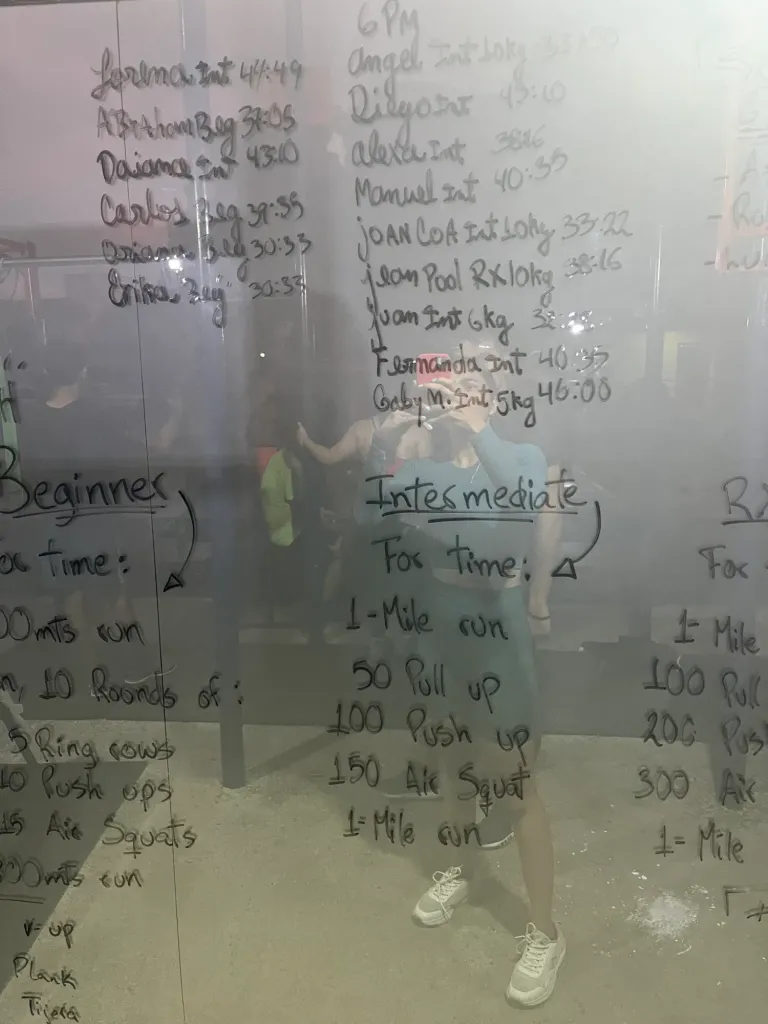 Lorena Int 44:49
Abraham Beg 37:05
Daiana Int 43:10
Carlos Beg 39:35
Oriana Beg 30:33
Erika Beg 30:33
6 PM
Angel Int 10kg
Diego Int 43:10
Alexa Int 38:16
Manuel Int 40:35
JOAN COA Int 10kg 33:22
jean Pool RX 10kg 38:16
juan Int 6kg
Fernanda Int 40:35
Gaby M. Int 5kg 46:00
Beginner
For time:
00mts run
10 Rounds of:
5 Ring rows
10 Push ups
15 Air Squats
800mts run
v-up
Plank
Tijera
Intermediate
For time:
1-Mile run
50 Pull up
100 Push up
150 Air Squat
1-Mile run
RX
For
1- Mile
100 Pull
200 Push
300 Air
1- Mile